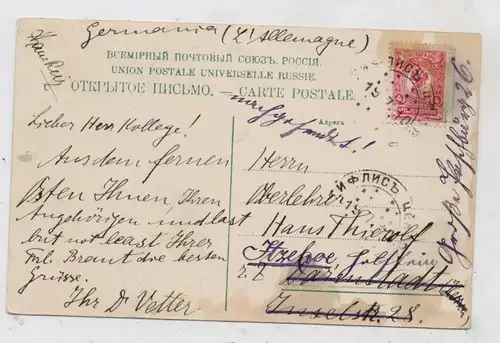 Germania (L'Allemagne)
ВСЕМІРНЫЙ ПОЧТОВЫЙ СОЮЗЪ. РОССІЯ.
UNION POSTALE UNIVERSELLE RUSSIE.
ОТКРЫТОЕ ПИСЬМО. — CARTE POSTALE.
Адресъ
nachgesandt!
ТИФЛИСЪ
ТИФЛИСЪ
Lieber Herr Kollege!
Aus dem fernen
Osten Ihnen, Ihren
Angehörigen und last
but not least Ihrer
Frl. Braut die besten
Grüsse.
Ihr Dr Vetter
Herrn
Oberlehrer
Hans Thierolf
Itzehoe, Holstein
z. Z. Darmstadt
Inselstr. 28.